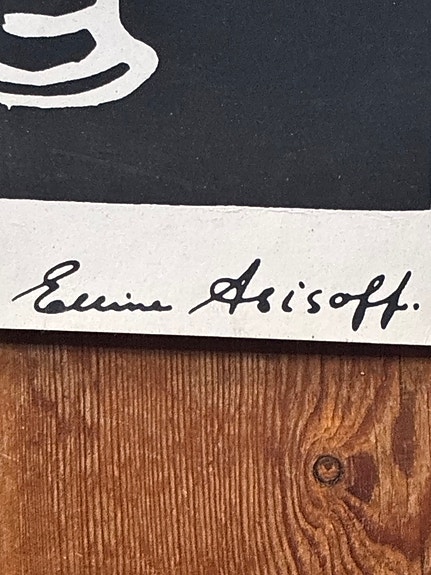 Elline Asisoff.